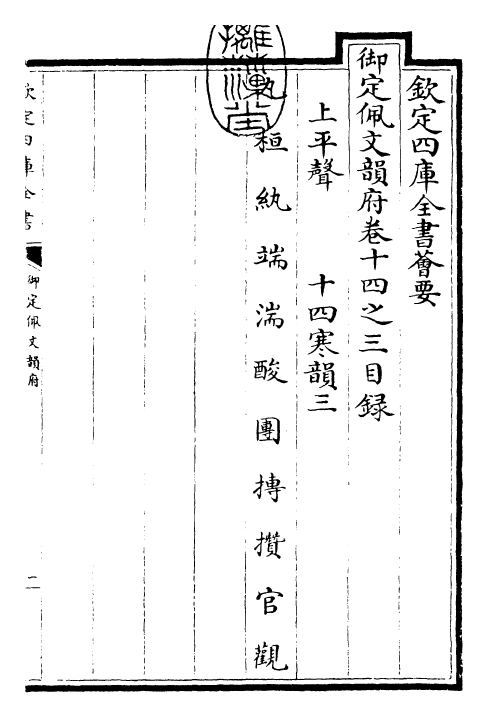 欽定四庫全書薈要
御定佩文韻府卷十四之三目録
上平聲 十四寒韻三
丸 桓 紈 端 湍 酸 團 摶 攢 官 觀
欽定四庫全書
御定佩文韻府